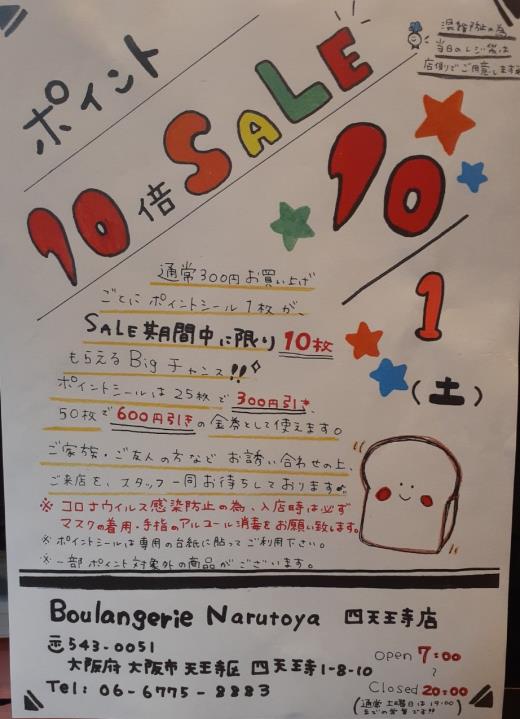 ポイント
10倍 SALE
混雑防止の為
当日のレジ袋は
店側でご用意します
10/1
(土)
通常300円お買い上げ
ごとにポイントシール1枚が、
SALE期間中に限り10枚
もらえるBigチャンス!!
ポイントシールは25枚で300円引き、
50枚で600円引きの金券として使えます。
ご家族・ご友人の方などお誘い合わせの上、
ご来店を、スタッフ一同お待ちしております。
※コロナウイルス感染防止の為、入店時は必ず
マスクの着用・手指のアルコール消毒をお願い致します。
※ポイントシールは専用の台紙に貼ってご利用下さい。
※一部ポイント対象外の商品がございます。
Boulangerie Narutoya 四天王寺店
〒543-0051
大阪府大阪市天王寺区 四天王寺1-8-10
Tel: 06-6775-8883
open 7:00
~
Closed 20:00
(通常土曜日は19:00
までの営業です!!)